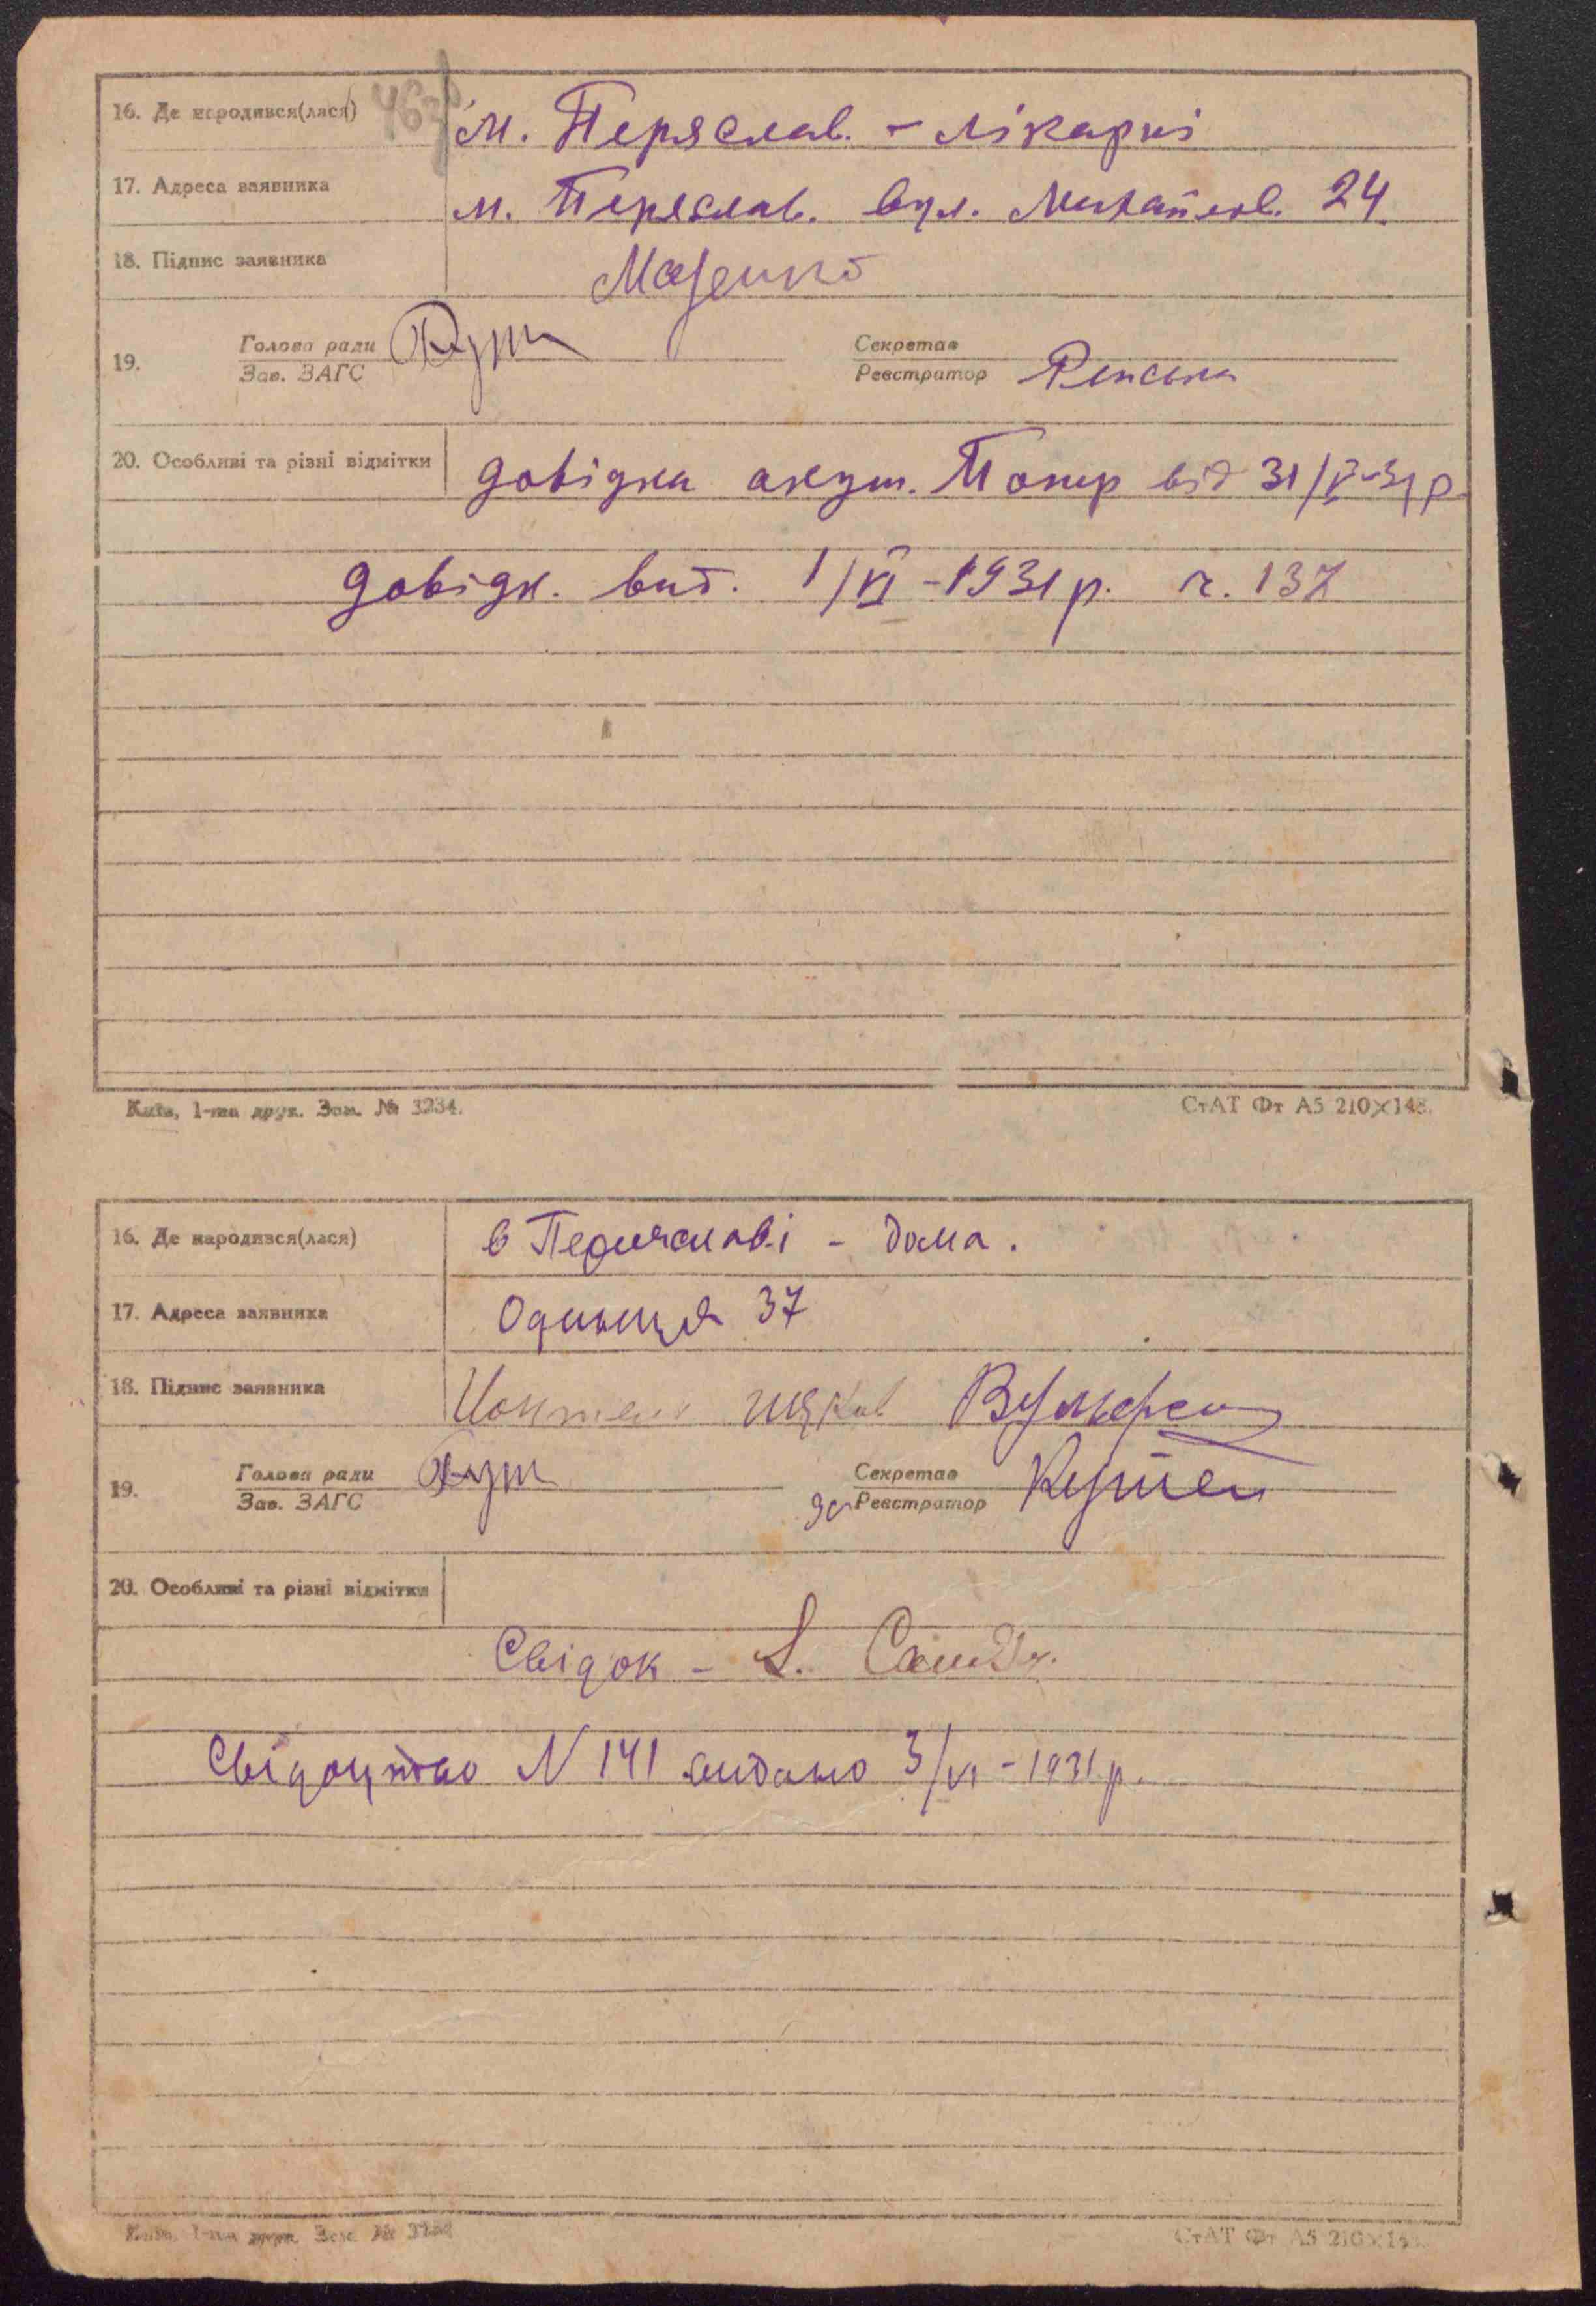 16. Де народився(лася)
м. Переяслав. - лікарні
17. Адреса заявника
м. Переяслав. вул. Михайлов. 24
18. Підпис заявника
19. Голова ради
Зав. ЗАГС
Секретар
Реєстратор
20. Особливі та різні відмітки
довідка акуш. від 31/V-31 р.
довідк. вид. 1/VI-1931 р. ч. 137
Київ, 1-ша друк. Зам. № 3234.
СтАТ Фт А5 210×148.
16. Де народився(лася)
в Переяславі - дома.
17. Адреса заявника
37
18. Підпис заявника
19. Голова ради
Зав. ЗАГС
Секретар
за Реєстратор
20. Особливі та різні відмітки
Свідок -
Свідоцтво N 141 видано 3/VI-1931 р.
Київ, 1-ша друк. Зам. № 3234
СтАТ Фт А5 210×148.